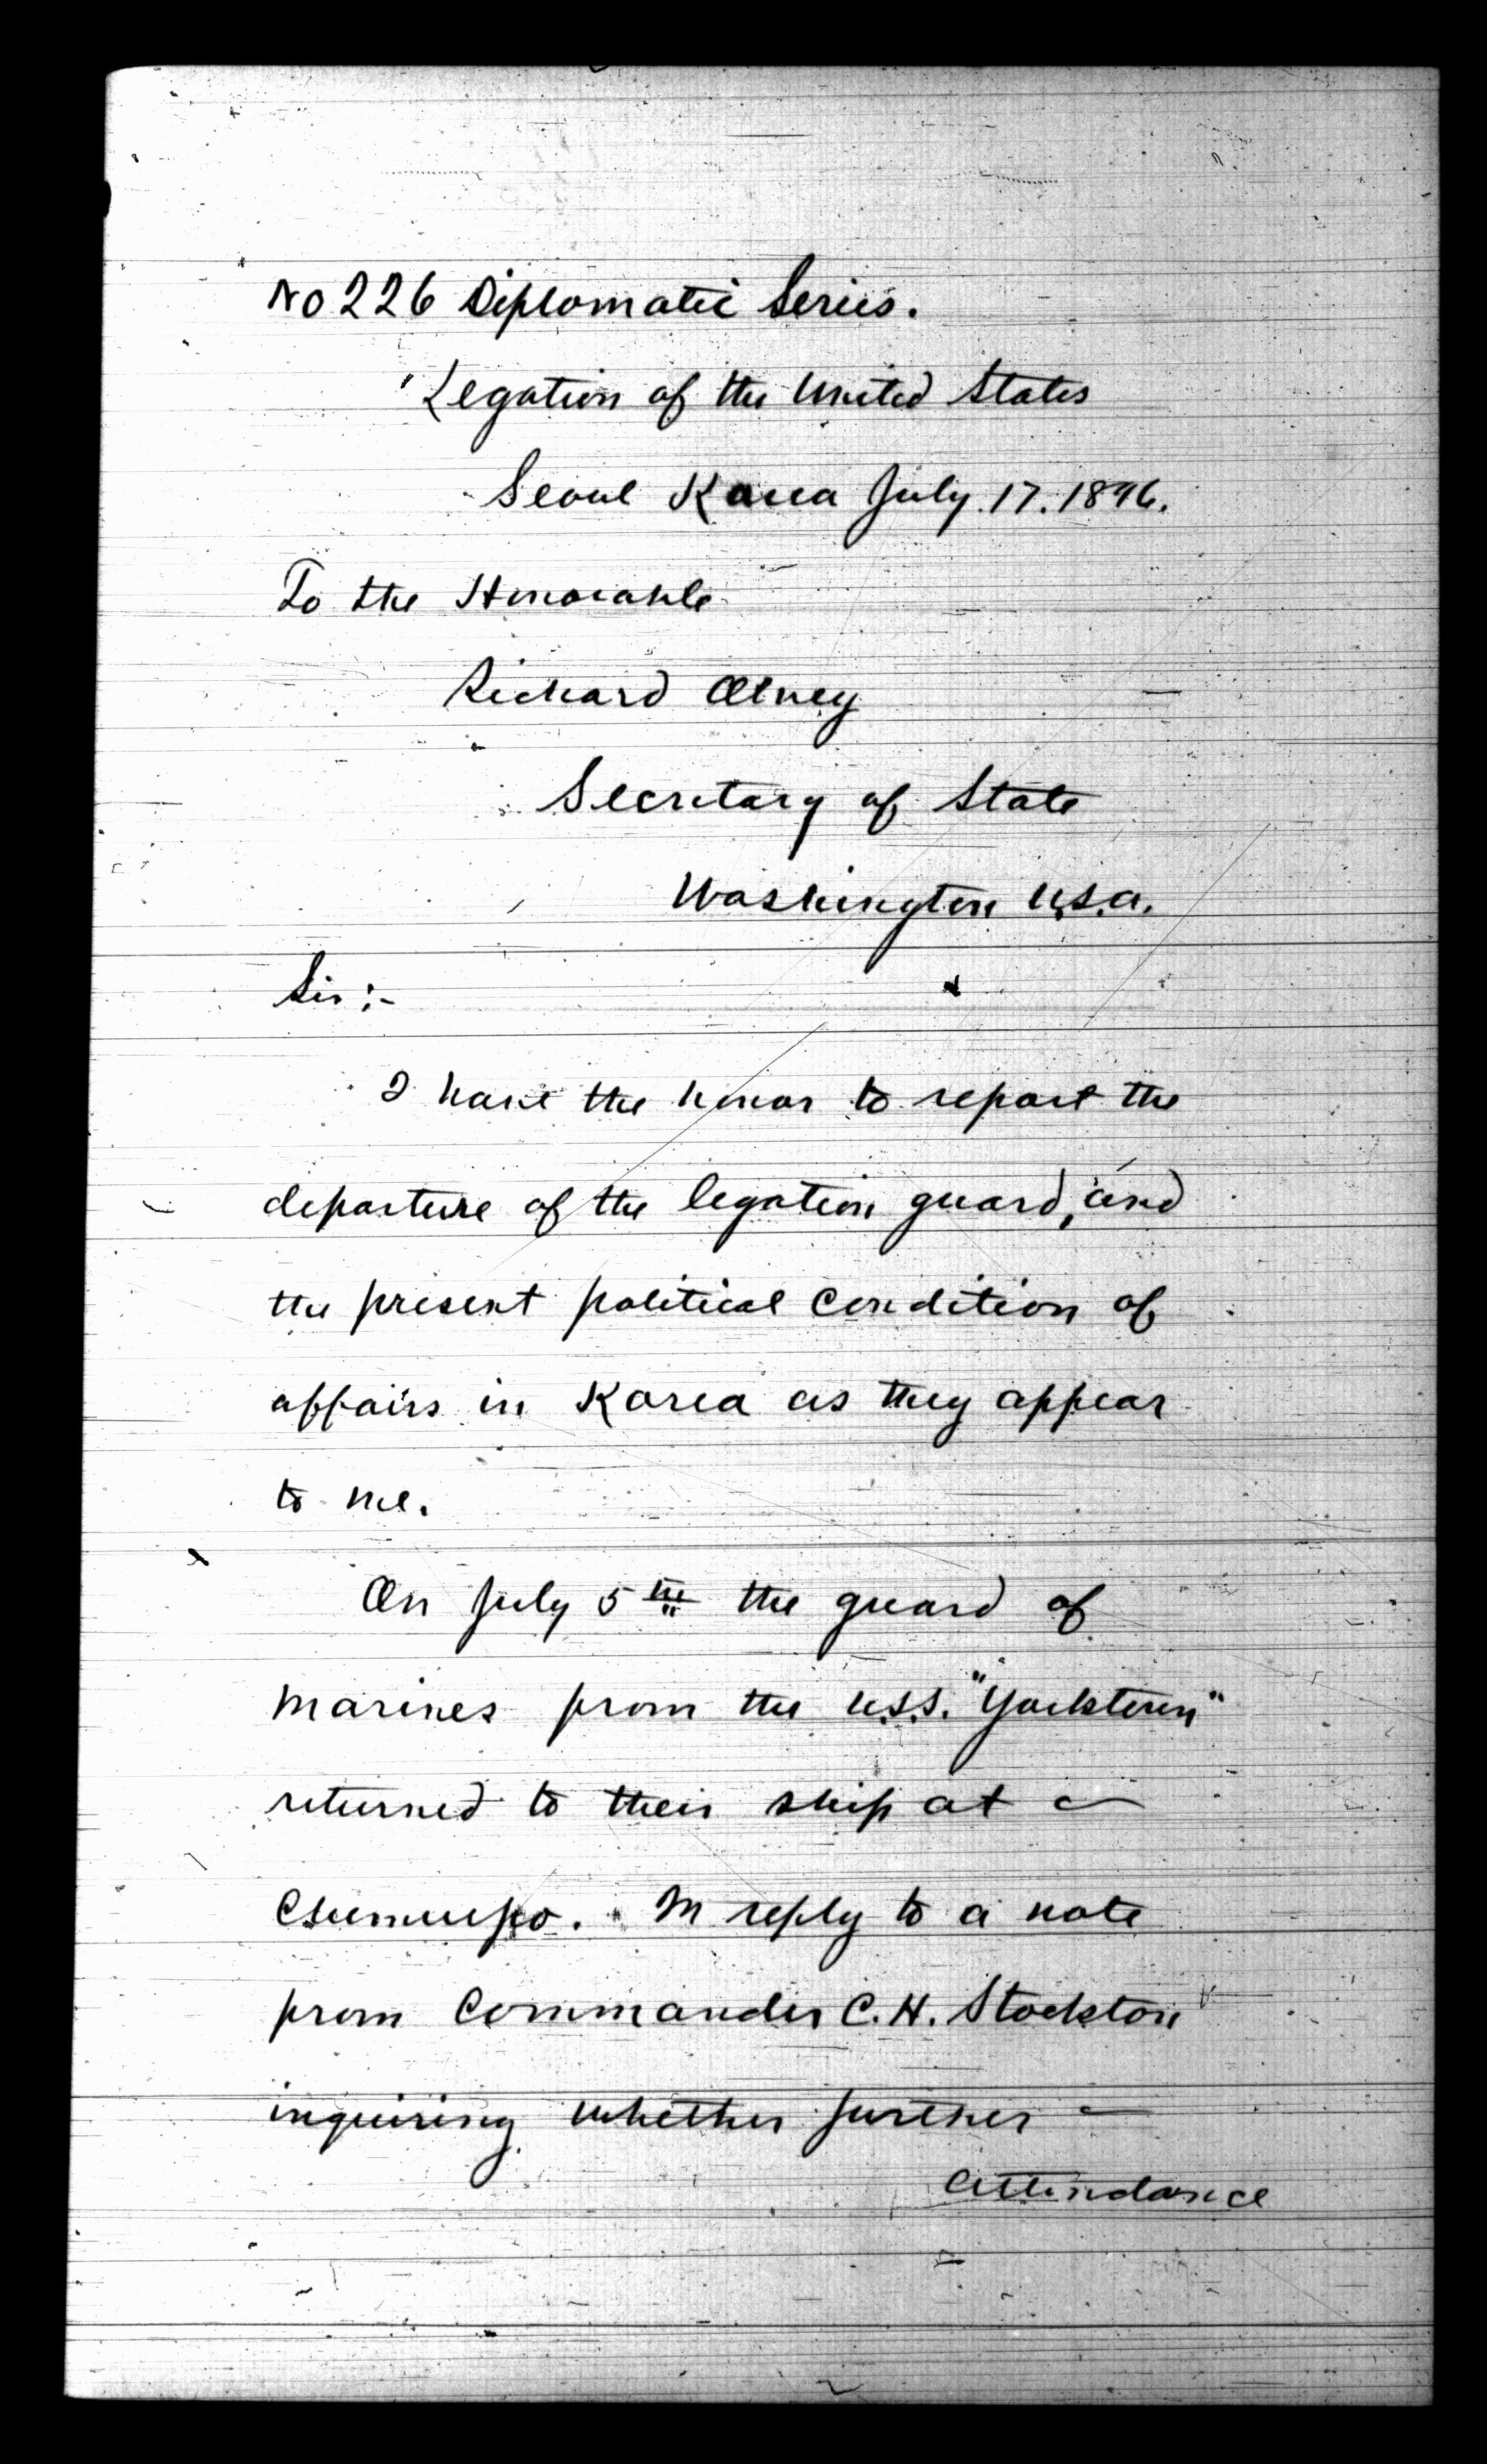 No 226 Diplomatic Series.
Legation of the United States
Seoul Korea July 17. 1896.
To the Honorable
Richard Olney
Secretary of State
Washington U.S.A.
Sir:-
I have the honor to report the
departure of the legation guard, and
the present political condition of
affairs in Korea as they appear
to me.
On July 5th the guard of
marines from the U.S.S. "Yorktown"
returned to their ship at —
Chemulpo. In reply to a note
from Commander C.H. Stockton
inquiring whether further —
attendance